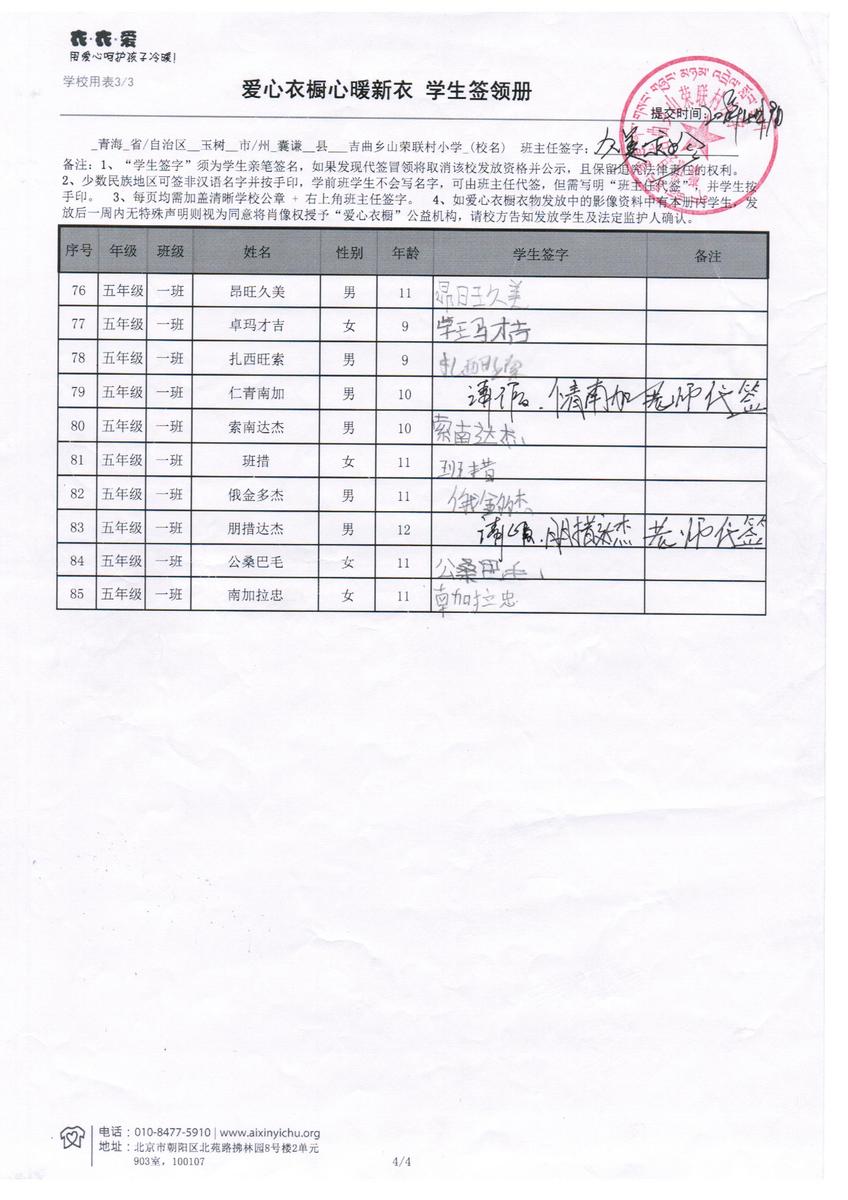 衣·衣·爱
用爱心呵护孩子冷暖!
学校用表3/3
爱心衣橱心暖新衣 学生签领册
提交时间:
_青海_省/自治区__玉树__市/州_囊谦__县___吉曲乡山荣联村小学_(校名) 班主任签字:
备注:1、“学生签字”须为学生亲笔签名,如果发现代签冒领将取消该校发放资格并公示,且保留追究法律责任的权利。
2、少数民族地区可签非汉语名字并按手印,学前班学生不会写名字,可由班主任代签,但需写明“班主任代签”,并学生按
手印。 3、每页均需加盖清晰学校公章 + 右上角班主任签字。 4、如爱心衣橱衣物发放中的影像资料中有本册内学生,发
放后一周内无特殊声明则视为同意将肖像权授予“爱心衣橱”公益机构,请校方告知发放学生及法定监护人确认。
序号 年级 班级 姓名 性别 年龄 学生签字 备注
76 五年级 一班 昂旺久美 男 11 昂日王久美
77 五年级 一班 卓玛才吉 女 9
78 五年级 一班 扎西旺索 男 9 扎西旺索
79 五年级 一班 仁青南加 男 10 请假. 南加老师代签
80 五年级 一班 索南达杰 男 10 索南达杰
81 五年级 一班 班措 女 11 班措
82 五年级 一班 俄金多杰 男 11 俄金多杰
83 五年级 一班 朋措达杰 男 12 请假.朋措达杰 老师代签
84 五年级 一班 公桑巴毛 女 11 公桑巴毛
85 五年级 一班 南加拉忠 女 11 南加拉忠
电话:010-8477-5910 | www.aixinyichu.org
地址:北京市朝阳区北苑路拂林园8号楼2单元
903室,100107
4/4